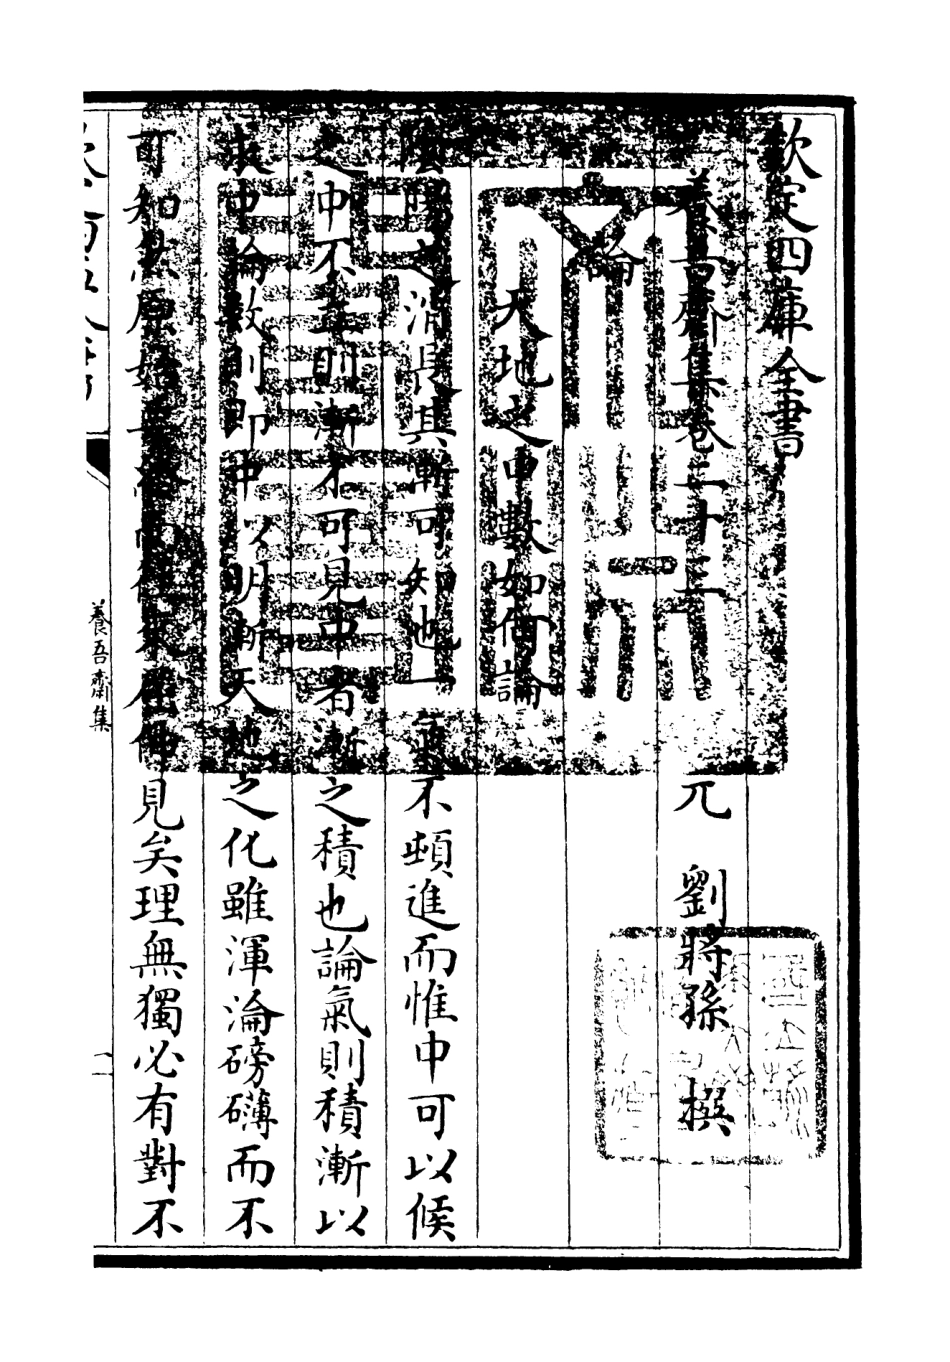 欽定四庫全書
養吾齋集卷二十三
元 劉將孫 撰
論
天地之中數如何論
陰陽之消長其漸可知也一氣不頓進而惟中可以候
之中不立則漸不可見中者漸之積也論氣則積漸以
求中論數則即中以明漸天地之化雖渾淪磅礴而不
可知然原始要終而往來屈伸見矣理無獨必有對不
養吾齋集